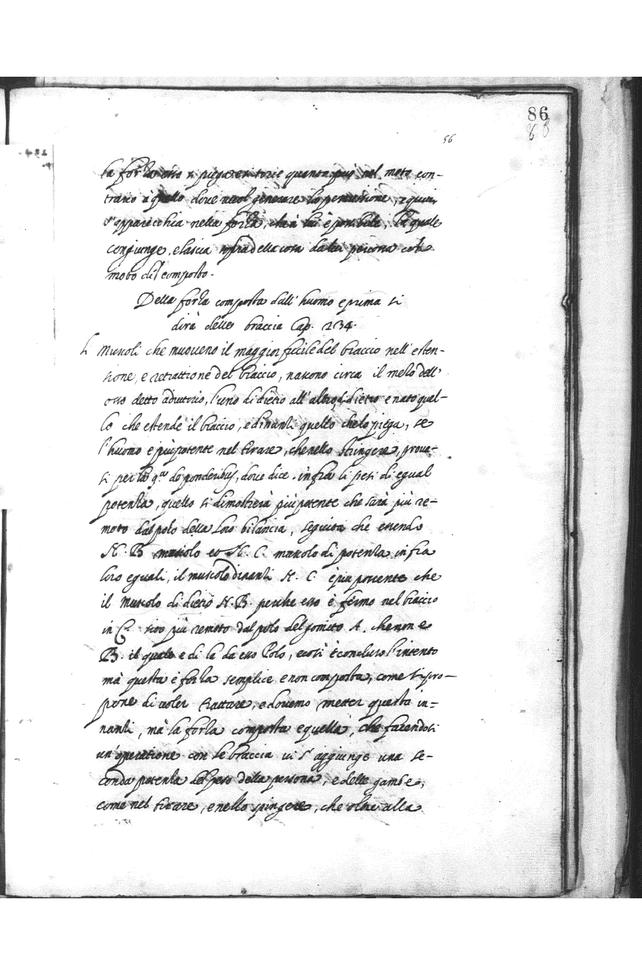 86
88
56
la forza esso si piega et torce quanto può nel moto con-
trario a quello dove vuol generare la percussione, e quivi
s'apparecchia nella forza, che à lui è possibile, la quale
congiunge, e lascia sopra della cosa da lui percossa col
moto di composto.
Della forza composta dall' huomo e prima si
dirà delle braccia Cap. 234.
L Muscoli che muoveno il maggior fucile del braccio nell' esten-
sione, e retrattione del braccio, nascono circa il mezo dell'
osso detto adiutorio, l'uno di dietro all' altro, di dietro e nato quel-
lo che estende il braccio, e dinanzi quello che lo piega, se
l'huomo e più potente nel tirare, che nello stringere, prova-
si per la 9.a de ponderibus, dove dice, infra li pesi di equal
potenza, quello si dimostrerà più potente che sarà più re-
moto dal polo della loro bilancia, seguita che essendo
N. B muscolo et N. C. muscolo di potenza infra
loro equali, il muscolo dinanzi N. C è più potente che
il muscolo di dietro N. B. perche esso è fermo nel braccio
in C. sito più remoto dal polo del gomito A. che non è
B. il quale e di la da esso Polo, e così è concluso l'intento
mà questa è forza semplice e non composta, come si pro-
pone di voler trattare, e dovemo metter questa in-
nanzi, mà la forza composta e quella, che facendosi
un' operatione con le braccia vi s' aggiunge una se-
conda potenza del peso della persona, e delle gambe,
come nel tirare, e nello spingere, che oltre alla